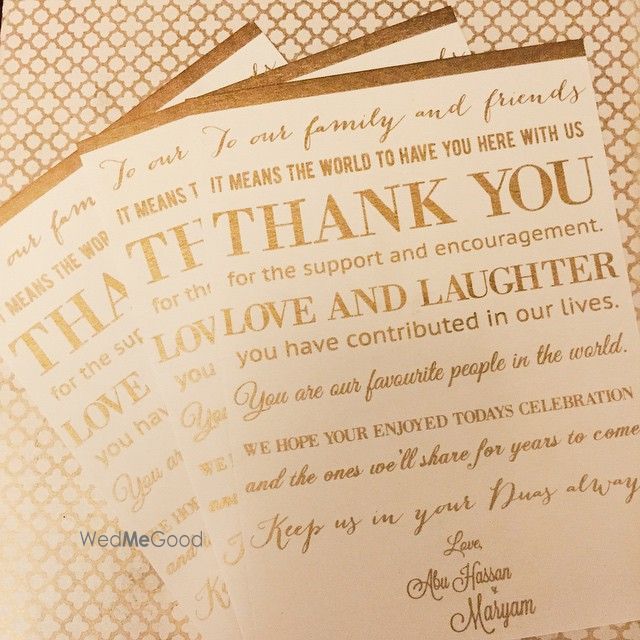 To our family and friends
IT MEANS THE WORLD TO HAVE YOU HERE WITH US
THANK YOU
for the support and encouragement.
LOVE AND LAUGHTER
you have contributed in our lives.
You are our favourite people in the world.
WE HOPE YOUR ENJOYED TODAYS CELEBRATION
and the ones we'll share for years to come
Keep us in your Duas alway
Love,
Abu Hassan
&
Maryam
To our
IT MEANS T
TH
for the
LOV
you
You
WE
and
our fam
MEANS THE WOR
THA
for the sup
LOVE
you have
You are
WE HOPE
and
WedMeGood